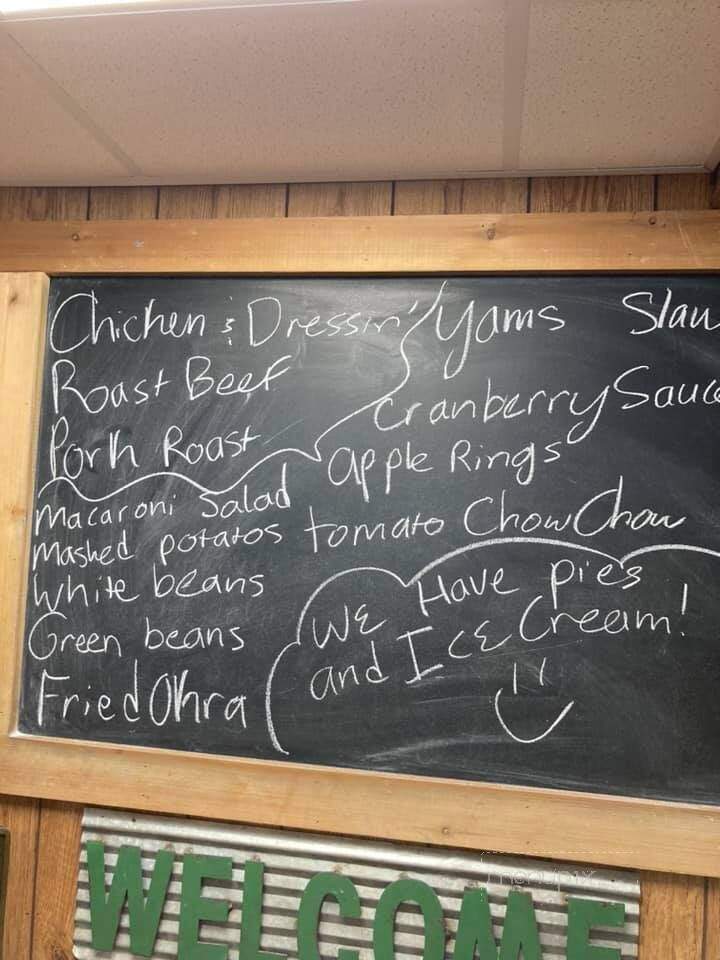 Chicken & Dressin'
Roast Beef
Pork Roast
Macaroni Salad
Mashed potatos
White beans
Green beans
Fried Okra
Yams Slaw
Cranberry Sauc
Apple Rings
tomato Chow Chow
We Have pies
and Ice Cream!
WELCOME
menupix